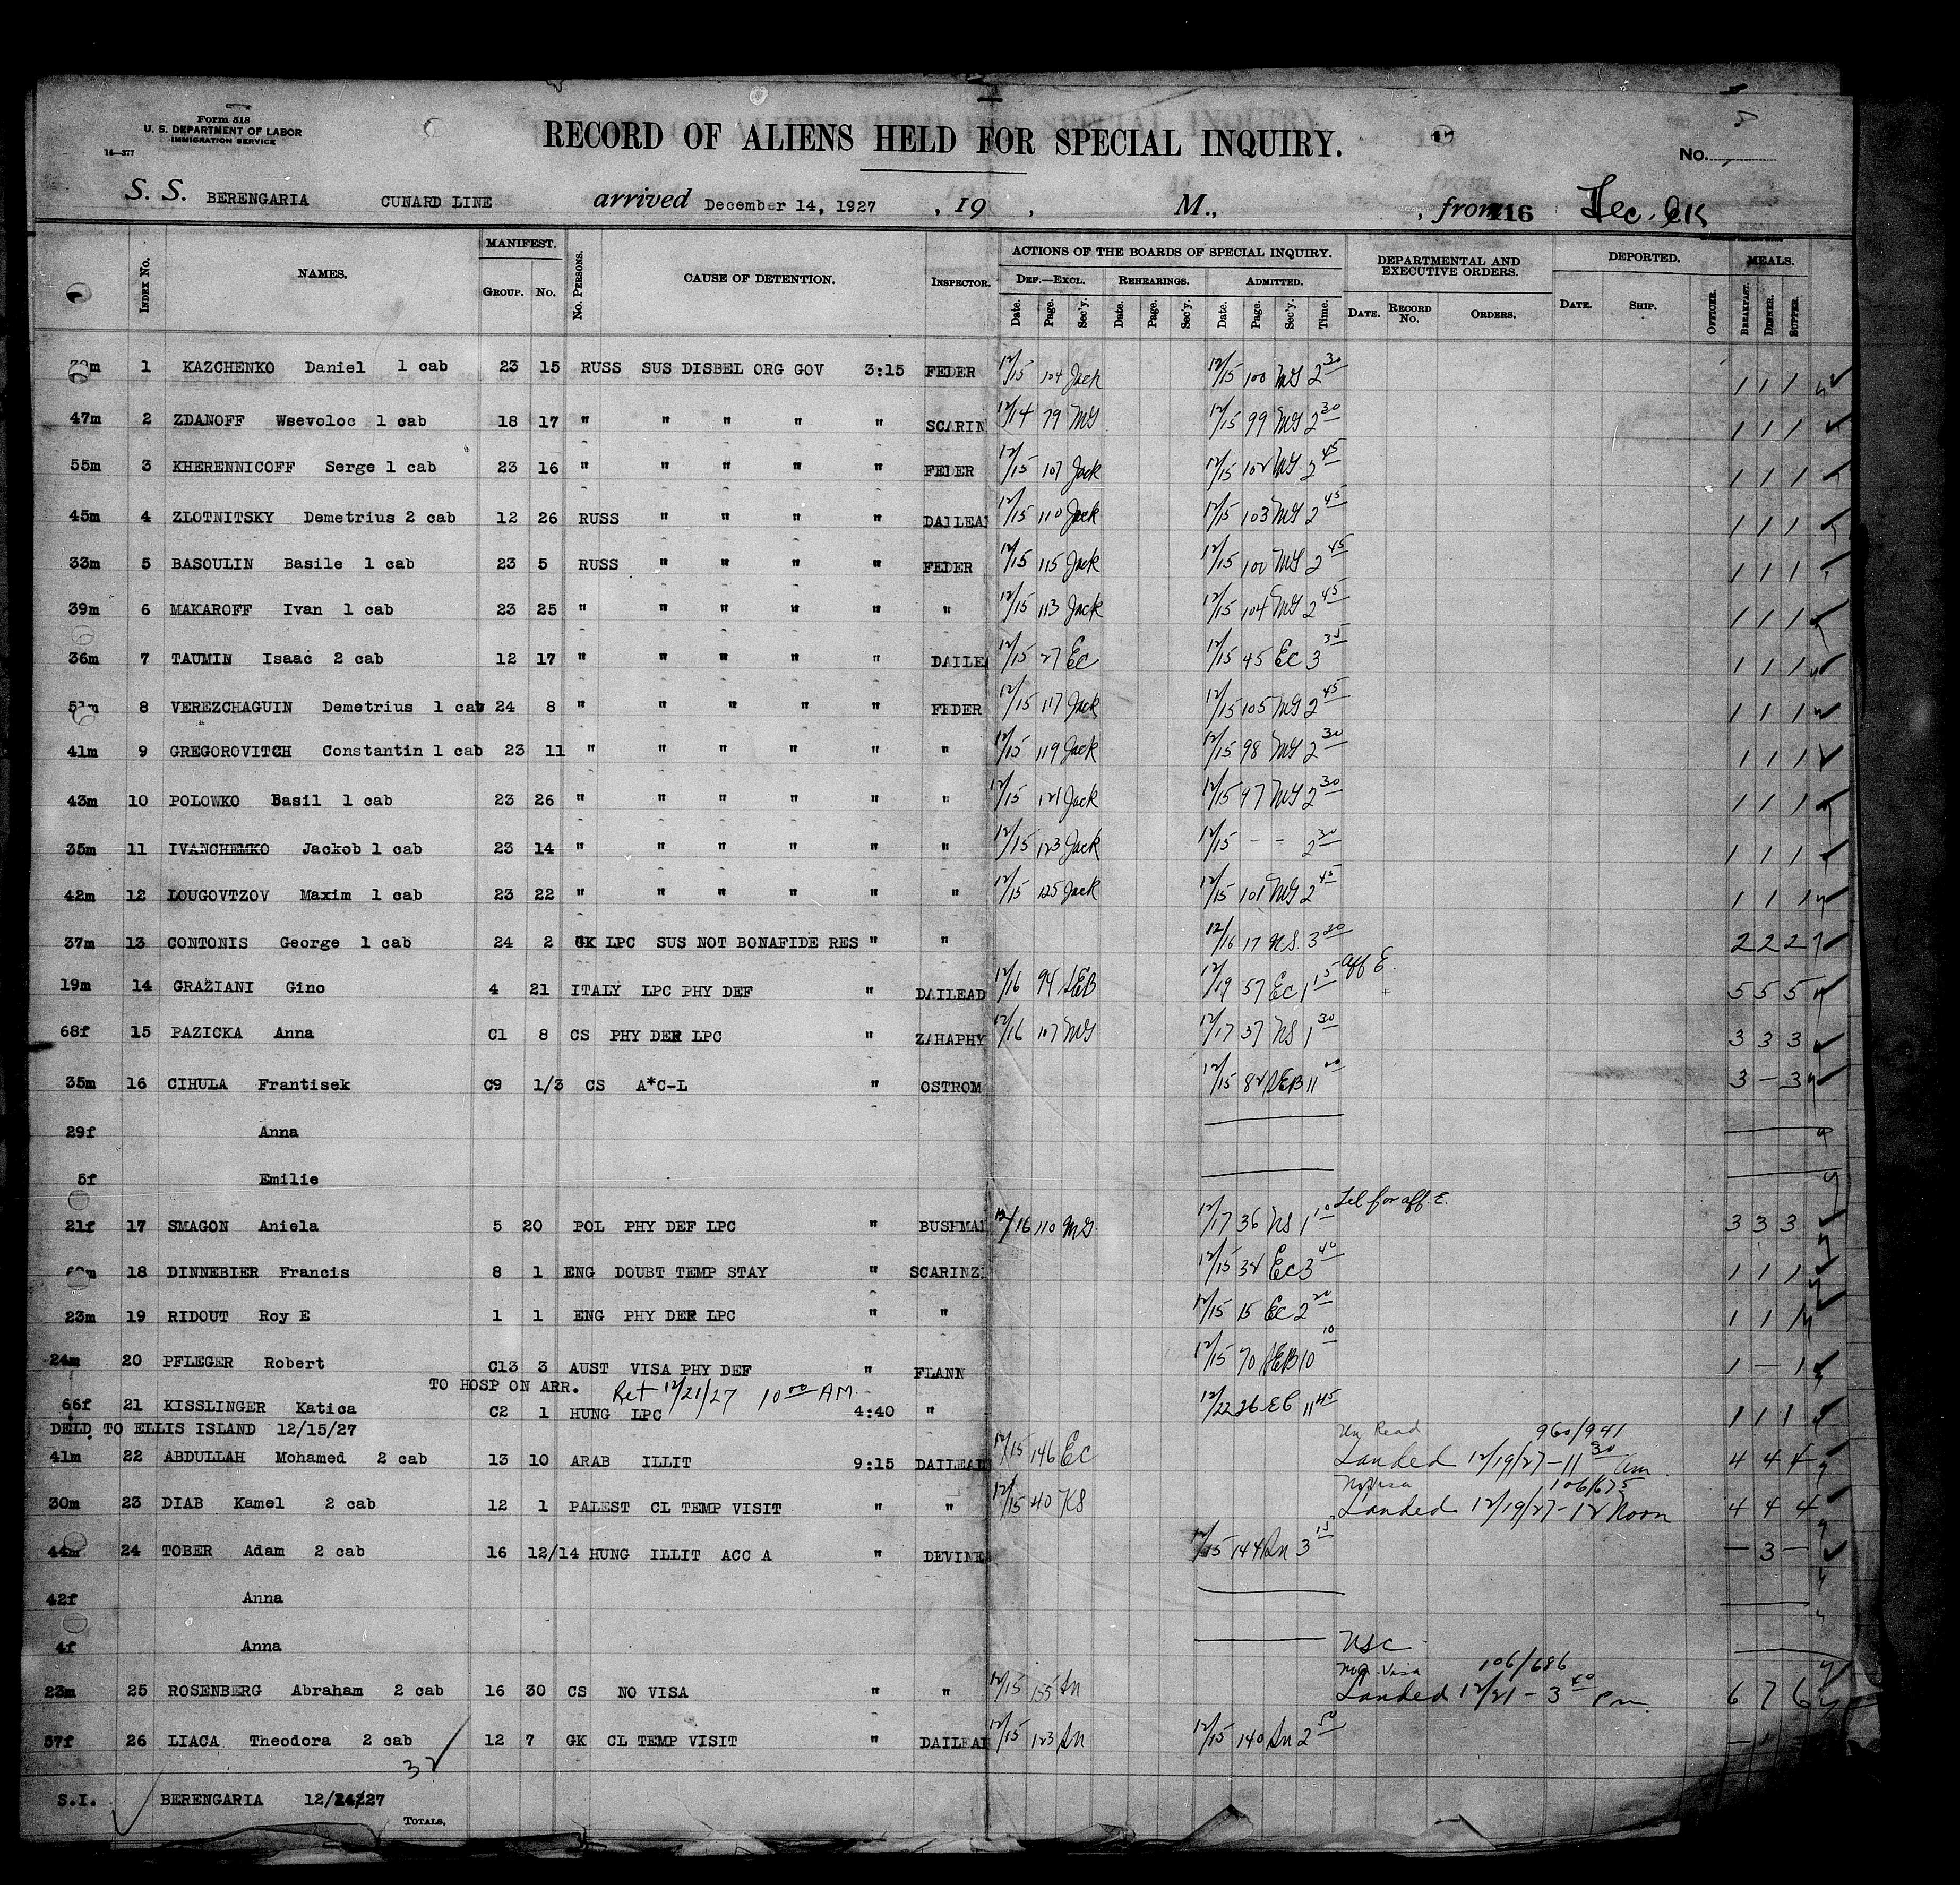 Form 518
U. S. DEPARTMENT OF LABOR
IMMIGRATION SERVICE
14—377
RECORD OF ALIENS HELD FOR SPECIAL INQUIRY.
No.
S. S. BERENGARIA CUNARD LINE arrived December 14, 1927 , 19 , M., , from 116
MANIFEST. ACTIONS OF THE BOARDS OF SPECIAL INQUIRY. DEPARTMENTAL AND EXECUTIVE ORDERS. DEPORTED. MEALS.
INDEX NO. NAMES. GROUP. NO. NO. PERSONS. CAUSE OF DETENTION. INSPECTOR. DEF.—EXCL. REHEARINGS. ADMITTED.
Date. Page. Sec'y. Date. Page. Sec'y. Date. Page. Sec'y. Time. DATE. RECORD NO. ORDERS. DATE. SHIP. OFFICER. BREAKFAST. DINNER. SUPPER.
1 KAZCHENKO Daniel 1 cab 23 15 RUSS SUS DISBEL ORG GOV 3:15 FEDER 12/15 104 Jack 12/15 100 MG 2 30 1 1 1
47m 2 ZDANOFF Wsevoloc 1 cab 18 17 " " " " " SCARIN 12/14 79 MG 12/15 99 MG 2 30 1 1 1
55m 3 KHERENNICOFF Serge 1 cab 23 16 " " " " " FEDER 12/15 107 Jack 12/15 102 MG 2 45 1 1 1
45m 4 ZLOTNITSKY Demetrius 2 cab 12 26 RUSS " " " " DAILEA 12/15 110 Jack 12/15 103 MG 2 45 1 1 1
33m 5 BASOULIN Basile 1 cab 23 5 RUSS " " " " FEDER 12/15 115 Jack 12/15 100 MG 2 45 1 1 1
39m 6 MAKAROFF Ivan 1 cab 23 25 " " " " " " 12/15 113 Jack 12/15 104 MG 2 45 1 1 1
36m 7 TAUMIN Isaac 2 cab 12 17 " " " " " DAILEA 12/15 27 EC 12/15 45 EC 3 35 1 1 1
51m 8 VEREZCHAGUIN Demetrius 1 cab 24 8 " " " " " FEDER 12/15 117 Jack 12/15 105 MG 2 45 1 1 1
41m 9 GREGOROVITCH Constantin 1 cab 23 11 " " " " " " 12/15 119 Jack 12/15 98 MG 2 30 1 1 1
43m 10 POLOWKO Basil 1 cab 23 26 " " " " " " 12/15 121 Jack 12/15 97 MG 2 30 1 1 1
35m 11 IVANCHEMKO Jackob 1 cab 23 14 " " " " " " 12/15 123 Jack 12/15 - - 2 30 1 1 1
42m 12 LOUGOVTZOV Maxim 1 cab 23 22 " " " " " " 12/15 125 Jack 12/15 101 MG 2 45 1 1 1
37m 13 CONTONIS George 1 cab 24 2 GK LPC SUS NOT BONAFIDE RES " " 12/16 17 NS. 3 20 2 2 2
19m 14 GRAZIANI Gino 4 21 ITALY LPC PHY DEF " DAILEAD 12/16 94 AEB 12/19 57 EC 1 5 aff E. 5 5 5
68f 15 PAZICKA Anna C1 8 CS PHY DEF LPC " ZAHAPHY 12/16 107 MG 12/17 37 NS 1 30 3 3 3
35m 16 CIHULA Frantisek C9 1/3 CS A*C-L " OSTROM 12/15 82 AEB 11 3 - 3
29f Anna
5f Emilie
21f 17 SMAGON Aniela 5 20 POL PHY DEF LPC " BUSHMAN 12/16 110 MG. 12/17 36 NS 1 10 Tel for aff. E. 3 3 3
18 DINNEBIER Francis 8 1 ENG DOUBT TEMP STAY " SCARINZI 12/15 34 EC 3 40 1 1 1
23m 19 RIDOUT Roy E 1 1 ENG PHY DEF LPC " " 12/15 15 EC 2 20 1 1 1
24m 20 PFLEGER Robert C13 3 AUST VISA PHY DEF " FLANN 12/15 70 AEB 10 10 1 - 1
TO HOSP ON ARR. Ret 12/21/27 10 00 AM.
66f 21 KISSLINGER Katica C2 1 HUNG LPC 4:40 " 12/22 26 EC 11 45 1 1 1
DELD TO ELLIS ISLAND 12/15/27
Un Read 960/941
41m 22 ABDULLAH Mohamed 2 cab 13 10 ARAB ILLIT 9:15 DAILEAD 12/15 146 EC Landed 12/19/27 - 11 30 am. 4 4 4
106/675
30m 23 DIAB Kamel 2 cab 12 1 PALEST CL TEMP VISIT " " 12/15 40 KS Landed 12/19/27 - 12 Noon 4 4 4
44m 24 TOBER Adam 2 cab 16 12/14 HUNG ILLIT ACC A " DEVINE 12/15 144 An 3 15 - 3 -
42f Anna
4f Anna
NSC
Non Visa 106/686
23m 25 ROSENBERG Abraham 2 cab 16 30 CS NO VISA " " 12/15 155 An Landed 12/21 - 3 40 Pm 6 7 6
57f 26 LIACA Theodora 2 cab 12 7 GK CL TEMP VISIT " DAILEAD 12/15 123 An 12/15 140 An 2 50 - 1
32
S.I. BERENGARIA 12/14/27
TOTALS,